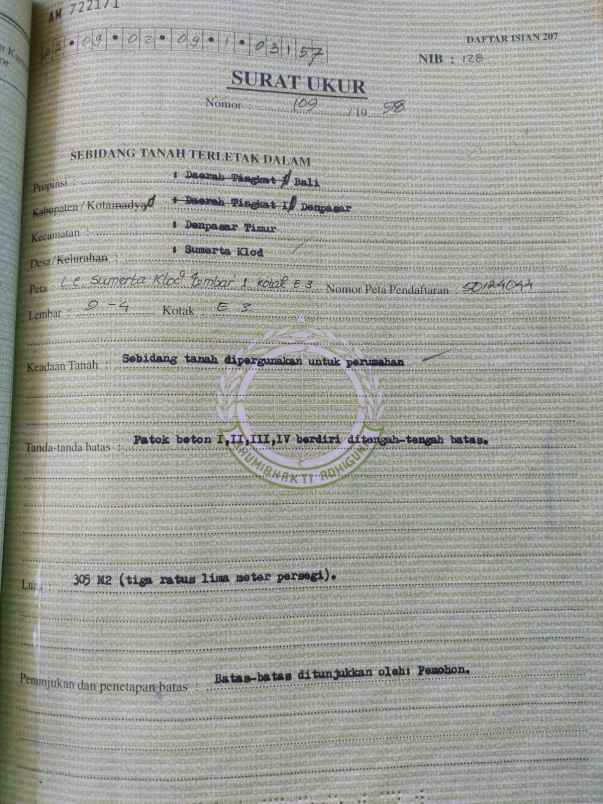 AM 722171
22 • 09 • 02 • 09 • 1 • 03157
DAFTAR ISIAN 207
NIB : 128
SURAT UKUR
Nomor : 109 / 19 98
SEBIDANG TANAH TERLETAK DALAM
Propinsi : : Daerah Tingkat I Bali
Kabupaten / Kotamadya : Daerah Tingkat II Denpasar
Kecamatan : : Denpasar Timur
Desa / Kelurahan : : Sumerta Klod
Peta : Sumerta Klod Lembar 1 kotak E 3 Nomor Peta Pendaftaran
Lembar : D - 4 Kotak : E 3
Keadaan Tanah Sebidang tanah dipergunakan untuk perumahan
Tanda-tanda batas : Patok beton I,II,III,IV berdiri ditengah-tengah batas.
BHUMIBHAKTI ADHIGUNA
Luas 305 M2 (tiga ratus lima meter persegi).
Penunjukan dan penetapan batas : Batas-batas ditunjukkan oleh: Pemohon.